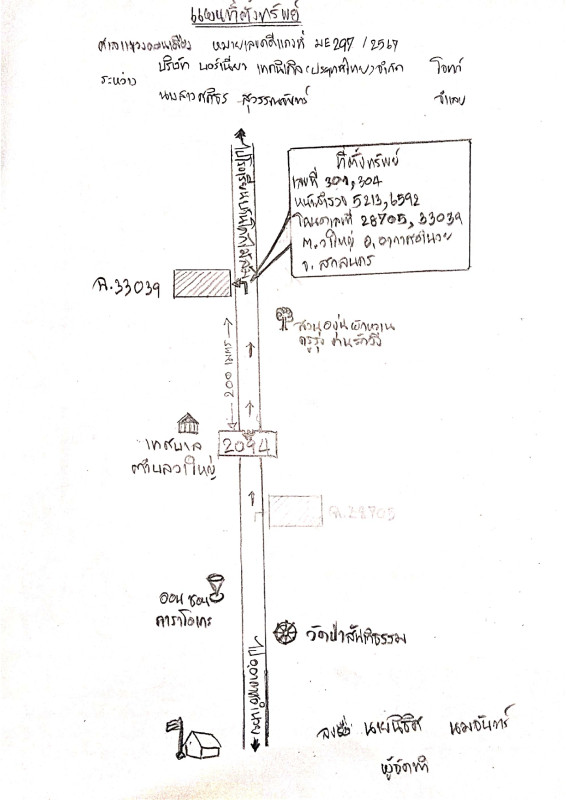 แผนที่ตั้งทรัพย์
ศาลแขวงดอนเมือง หมายเลขคดีแดงที่ ผบE297/2567
ระหว่าง บริษัท บอร์เนียว เทคนิเคิล (ประเทศไทย) จำกัด โจทก์
นางสาวศศิธร สุวรรณจันทร์ จำเลย
ที่ตั้งทรัพย์
เลขที่ 301, 304
หน้าสำรวจ 5213, 6592
โฉนดเลขที่ 28705, 33039
ต.วาใหญ่ อ.อากาศอำนวย
จ. สกลนคร
ฉ.33039
สวนองุ่นผักหวาน
200 เมตร
เทศบาล
ตำบลวาใหญ่
2094
ฉ.28705
ออนซอน
คาราโอเกะ
วัดป่าสันติธรรม
ไปอากาศอำนวย
ลงชื่อ นายนิธิศ นมจันทร์
ผู้จัดทำ